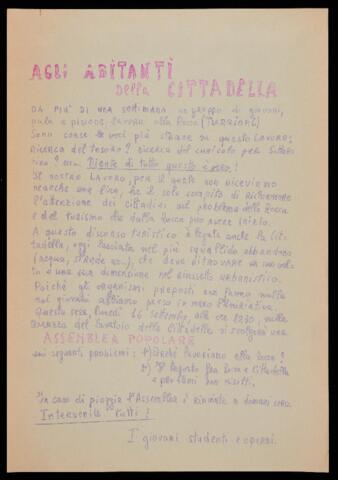 AGLI ABITANTI
della CITTADELLA
DA PIU' DI UNA settimana un gruppo di giovani,
pala e piccone, lavora alla Rocca (TORRIONE)
Sono corse le voci più strane su questo lavoro:
Ricerca del tesoro? ricerca del cunicolo per
ecc. Niente di tutto questo è vero!
Il nostro lavoro, per il quale non riceviamo
neanche una lira, ha il solo scopo di richiamare
l'attenzione dei cittadini sul problema della Rocca
e del turismo che dalla Rocca può avere inizio.
A questo discorso turistico è legata anche la Cit-
tadella, oggi lasciata nel più squallido abbandono
(acqua, strade ecc..), che deve ritrovare un suo volto
e una sua dimensione nel riassetto urbanistico.
Poiché gli organismi preposti non fanno nulla
noi giovani abbiamo preso in mano l'iniziativa.
Questa sera, lunedì 16 settembre, alle ore 20,30, nella
piazza del lavatoio della Cittadella si svolgerà una
ASSEMBLEA POPOLARE
sui seguenti problemi: 1) Perché lavoriamo alla Rocca?
2) Rapporto fra Rocca e Cittadella
e problemi non risolti.
In caso di pioggia l'Assemblea è rinviata a domani sera.
Intervenite Tutti!
I giovani studenti e operai.